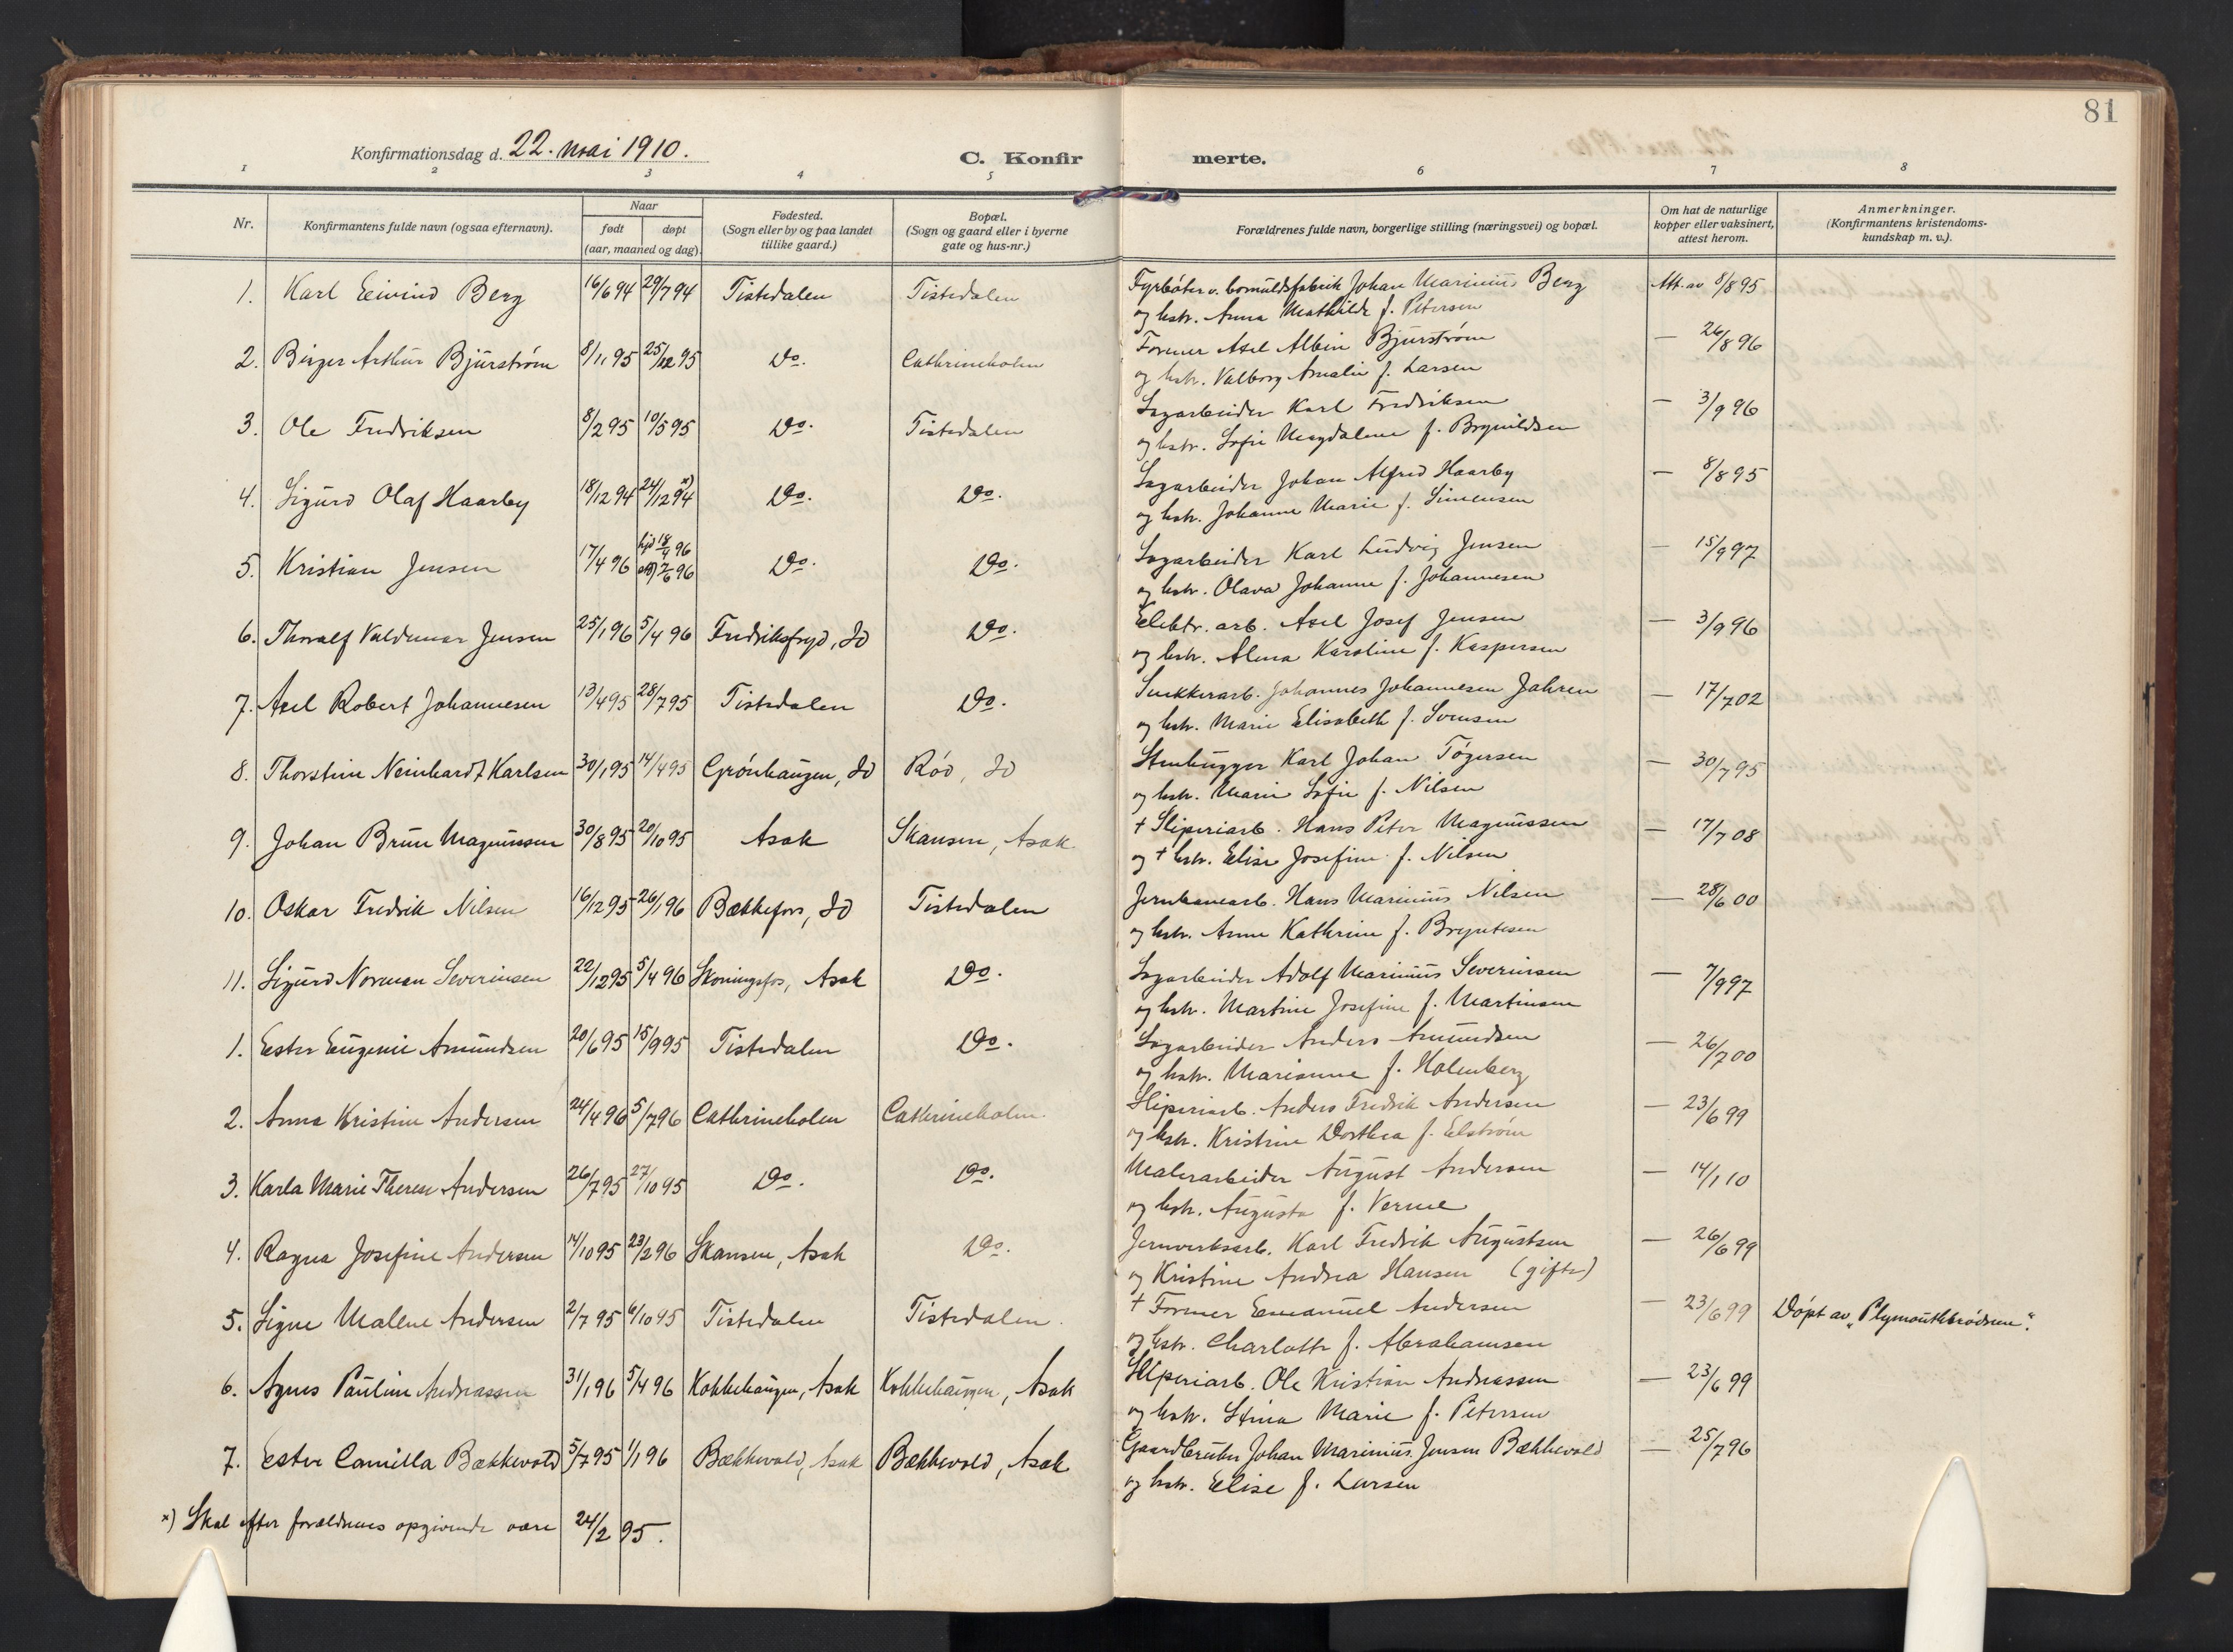 81
Konfirmationsdag d. 22. mai 1910.
C. Konfirmerte.
1 2 3 4 5 6 7 8
Nr. Konfirmantens fulde navn (ogsaa efternavn). Naar født døpt (aar, maaned og dag). Fødested. (Sogn eller by og paa landet tillike gaard.) Bopæl. (Sogn og gaard eller i byerne gate og hus-nr.) Forældrenes fulde navn, borgerlige stilling (næringsvei) og bopæl. Om hat de naturlige kopper eller vaksinert, attest herom. Anmerkninger. (Konfirmantens kristendoms-kundskap m. v.).
1. Karl Eivind Berg 16/6 94 29/7 94 Tistedalen Tistedalen Fyrbøter v. bomuldsfabrik Johan Marinius Berg Att. av 8/8 95
og hstr. Anna Mathilde f. Petersen
2. Birger Arthur Bjurstrøm 8/11 95 25/12 95 Do. Cathrineholm Former Axel Albin Bjurstrøm — 26/8 96
og hstr. Valborg Amalie f. Larsen
3. Ole Fredriksen 8/2 95 10/5 95 Do. Tistedalen Sagarbeider Karl Fredriksen — 3/9 96
og hstr. Sofie Magdalene f. Brynildsen
4. Sigurd Olaf Haarby 18/12 94 24/12 94 x) Do. Do. Sagarbeider Johan Alfred Haarby — 8/8 95
og hstr. Johanne Marie f. Simensen
5. Kristian Jensen 17/4 96 hjd 18/4 96 7/6 96 Do. Do. Sagarbeider Karl Ludvig Jensen — 15/9 97
og hstr. Olava Johanne f. Johannesen
6. Thoralf Valdemar Jensen 25/1 96 5/4 96 Fredriksfryd, Id Do. Elektr. arb. Axel Josef Jensen — 3/9 96
og hstr. Alma Karoline f. Kaspersen
7. Axel Robert Johannesen 13/4 95 28/7 95 Tistedalen Do. Snekkerarb. Johannes Johannesen Jahren — 17/7 02
og hstr. Marie Elisabeth f. Svensen
8. Thorstein Neinhardt Karlsen 30/1 95 14/4 95 Grønhaugen, Id Rød, Id Stenhugger Karl Johan Tøgersen — 30/7 95
og hstr. Marie Sofie f. Nilsen
9. Johan Brun Magnussen 30/8 95 20/10 95 Asak Skansen, Asak † Sliperiarb. Hans Peter Magnussen — 17/7 08
og † hstr. Elise Josefine f. Nilsen
10. Oskar Fredrik Nilsen 16/12 95 26/1 96 Bækkefors, Id Tistedalen Jernbanearb. Hans Marinius Nilsen — 28/6 00
og hstr. Anne Kathrine f. Bryntesen
11. Sigurd Norman Severinsen 22/12 95 5/4 96 Skoningsfos, Asak Do. Sagarbeider Adolf Marinius Severinsen — 7/9 97
og hstr. Martine Josefine f. Martinsen
1. Ester Eugenie Amundsen 20/6 95 15/9 95 Tistedalen Do. Sagarbeider Anders Amundsen — 26/7 00
og hstr. Marianne f. Holenberg
2. Anna Kristine Andersen 24/4 96 5/7 96 Cathrineholm Cathrineholm Sliperiarb. Anders Fredrik Andersen — 23/6 99
og hstr. Kristine Dorthea f. Elstrøm
3. Karla Marie Therese Andersen 26/7 95 27/10 95 Do. Do. Malerarbeider August Andersen — 14/1 10
og hstr. Augusta f. Verme
4. Ragna Josefine Andersen 14/10 95 23/2 96 Skansen, Asak Do. Jernverksarb. Karl Fredrik Augustsen — 26/6 99
og Kristine Andrea Hansen (gifte)
5. Signe Malene Andersen 2/7 95 6/10 95 Tistedalen Tistedalen. † Former Emanuel Andersen — 23/6 99 Døpt av „Plymouthbrødrene“.
og hstr. Charlotte f. Abrahamsen
6. Agnes Pauline Andreassen 31/1 96 5/4 96 Kokkehaugen, Asak Kokkehaugen, Asak Sliperiarb. Ole Kristian Andreassen — 23/6 99
og hstr. Stina Marie f. Petersen
7. Ester Camilla Bækkevold 5/7 95 1/1 96 Bækkevold, Asak Bækkevold, Asak Gaardbruker Johan Marinius Jensen Bækkevold — 25/7 96
og hstr. Elise f. Larsen
x) Skal efter forældrenes opgivende være 24/2 95.